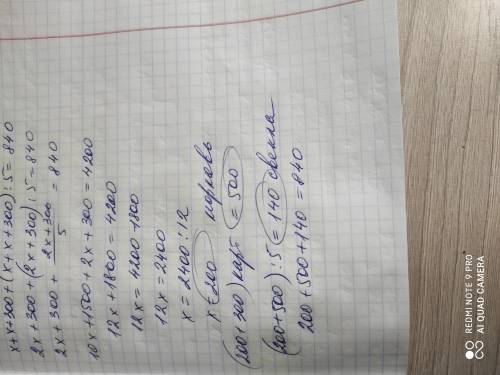 x+x+300+(x+x+300):5=840
2x+300+(2x+300):5=840
2x+300+ 2x+300/5 =840
10x+1500+2x+300=4200
12x+1800=4200
12x=4200-1800
12x=2400
x=2400:12
x=200 морковь
(200+300) карт =500
(200+500):5=140 свекла
200+500+140=840
REDMI NOTE 9 PRO
AI QUAD CAMERA